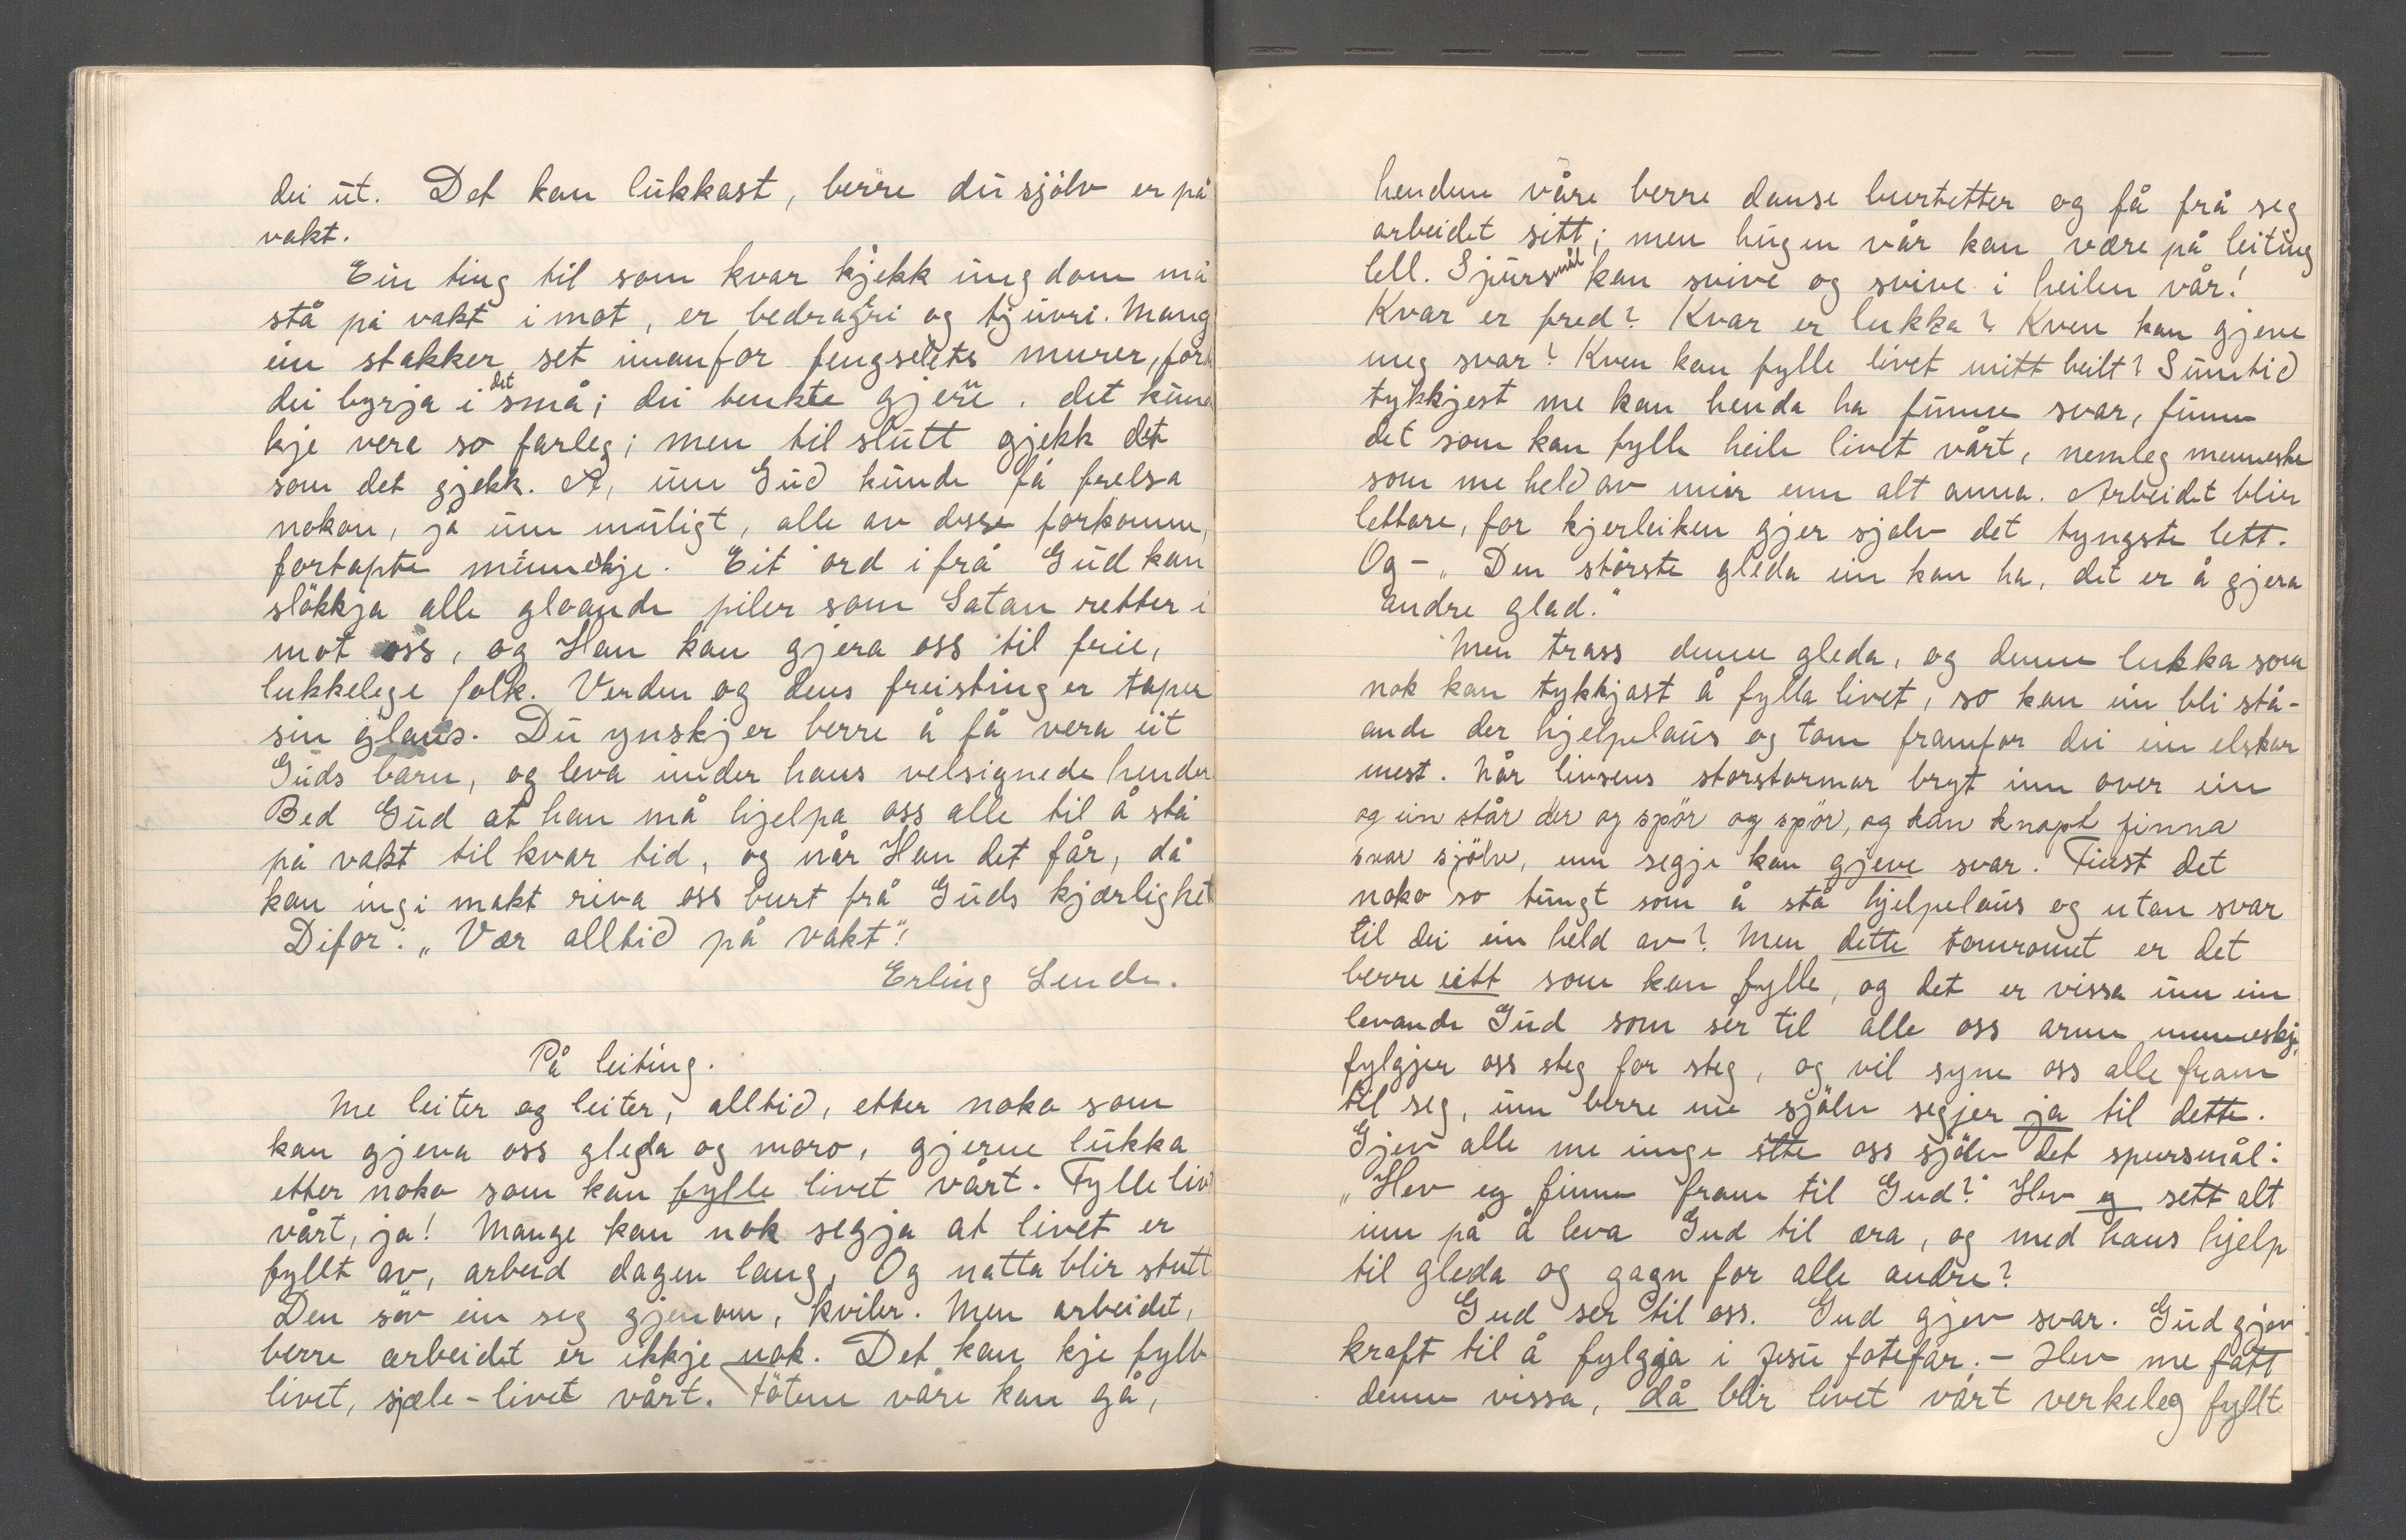 dei ut. Det kan lukkast, berre du sjölv er på
vakt.
Ein ting til som kvar kjekk ungdom må
stå på vakt imot, er bedrageri og tjuvri. Mang
ein stakker set inanfor fengselets murer, for
dei byrja i det små; dei tenkte gjerne. det kund
kje vera so farleg; men til slutt gjekk det
som det gjekk. Å, um Gud kunde få frelsa
nokon, ja um muligt, alle av desse forkomne,
fortapte menneskje. Eit ord ifrå Gud kan
slökkja alle gloande piler som Satan retter i
mot oss, og Han kan gjera oss til frie,
lukkelege folk. Verden og dens freistinger taper
sin glans. Du ynskjer berre å få vera eit
Guds barn, og leva under hans velsignede hender
Bed Gud at han må hjelpa oss alle til å stå
på vakt til kvar tid, og når Han det får, då
kan ingi makt riva oss burt frå Guds kjærlighet
Difor: „Vær alltid på vakt"!
Erling Lende.
På leiting.
Me leiter og leiter, alltid, etter noko som
kan gjeva oss gleda og moro, gjerne lukka
etter noko som kan fylle livet vårt. Fylle liv
vårt, ja! Mange kan nok segja at livet er
fyllt av, arbeid dagen lang, Og natta blir stutt
Den söv ein seg gjenom, kviler. Men arbeidet,
berre arbeidet er ikkje nok. Det kan kje fylle
livet, sjæle-livet vårt. Fötene våre kan gå,
hendene våre berre danse burtetter og få frå seg
arbeidet sitt; men hugen vår kan være på leiting
lell. Spursmål kan svive og svive i heilen vår!
Kvar er fred? Kvar er lukka? Kven kan gjeve
meg svar? Kven kan fylle livet mitt heilt? Sumtid
tykkjest me kan henda ha funne svar, funne
det som kan fylle heile livet vårt, nemleg menneske
som me held av meir enn alt anna. Arbeidet blir
lettare, for kjerleiken gjer sjølv det tyngste lett.
Og – „Den störste gleda ein kan ha, det er å gjera
andre glad."
Men trass denne gleda, og denne lukka som
nok kan tykkjast å fylla livet, so kan ein bli stå-
ande der hjelpelaus og tom framfor dei ein elskar
mest. Når livsens storstormar bryt inn over ein
og ein står der og spör og spör, og kan knapt finna
svar sjölv, enn segje kan gjeve svar. Finst det
noko so tungt som å stå hjelpelaus og utan svar
til dei ein held av? Men dette tomromet er det
berre eitt som kan fylle, og det er vissa um ein
levande Gud som ser til alle oss arme menneskje,
fylgjer oss steg for steg, og vil syne oss alle fram
til seg, um berre me sjölv segjer ja til dette.
Gjev alle me unge sette oss sjölv det spursmål:
„Hev eg funne fram til Gud?" Hev eg sett alt
inn på å leva Gud til æra, og med hans hjelp
til gleda og gagn for alle andre?
Gud ser til oss. Gud gjev svar. Gud gjev
kraft til å fylgja i Jesu fotefar. – Hev me fått
denne vissa, då blir livet vårt verkeleg fyllt